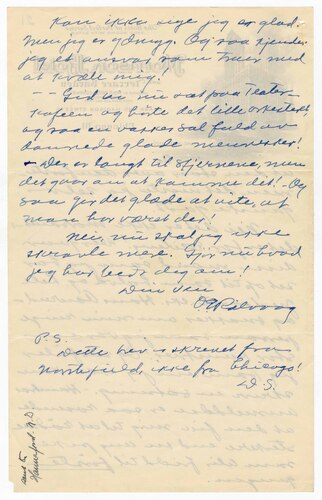 Kan ikke sige jeg er glad.
Men jeg er Og saa kjender
jeg et ansvar som truer med
at kvæle mig!
-- Gid vi nu sat paa Teater-
kafeen og hørte det lille orkestret,
og saa en vakker sal fuld av
dannede glade mennesker!
- Der er langt til stjernene, men
det gaar an at komme dit! Og
saa gir det glæde at vite, at
man har været der!
Nei, nu skal jeg ikke
skravle mere. Gjør nu hvad
jeg har bedt dig om!
Din ven
OERølvaag
P.S.
Dette brev er skrevet fra
Northfield, ikke fra Chicago!
D.S.
sent to
Hannaford N.D.